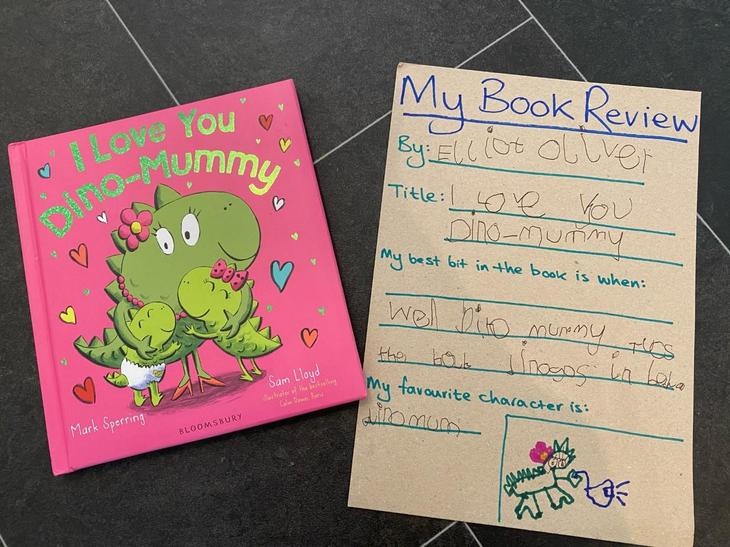 I Love You
Dino-Mummy
Mark Sperring
Sam Lloyd
Illustrator of the bestselling
Calm Down, Boris
BLOOMSBURY
My Book Review
By: Elliot oliver
Title: I Love You
Dino-mummy
My best bit in the book is when:
Well Dino mummy
the in
My favourite character is:
dinomum